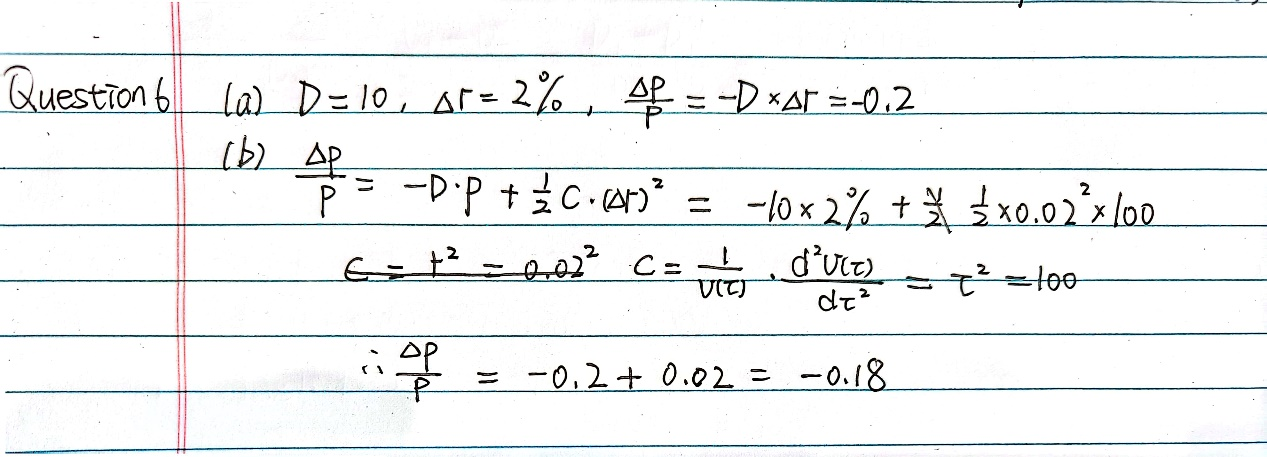 Question 6 (a) D = 10, Δr = 2%, ΔP/P = -D × Δr = -0.2
(b) ΔP/P = -D·P + 1/2 C·(Δr)² = -10 × 2% + 1/2 × 0.02² × 100
C = t² = 0.02² C = 1/U(τ) · d²U(τ)/dτ² = τ² = 100
∴ ΔP/P = -0.2 + 0.02 = -0.18